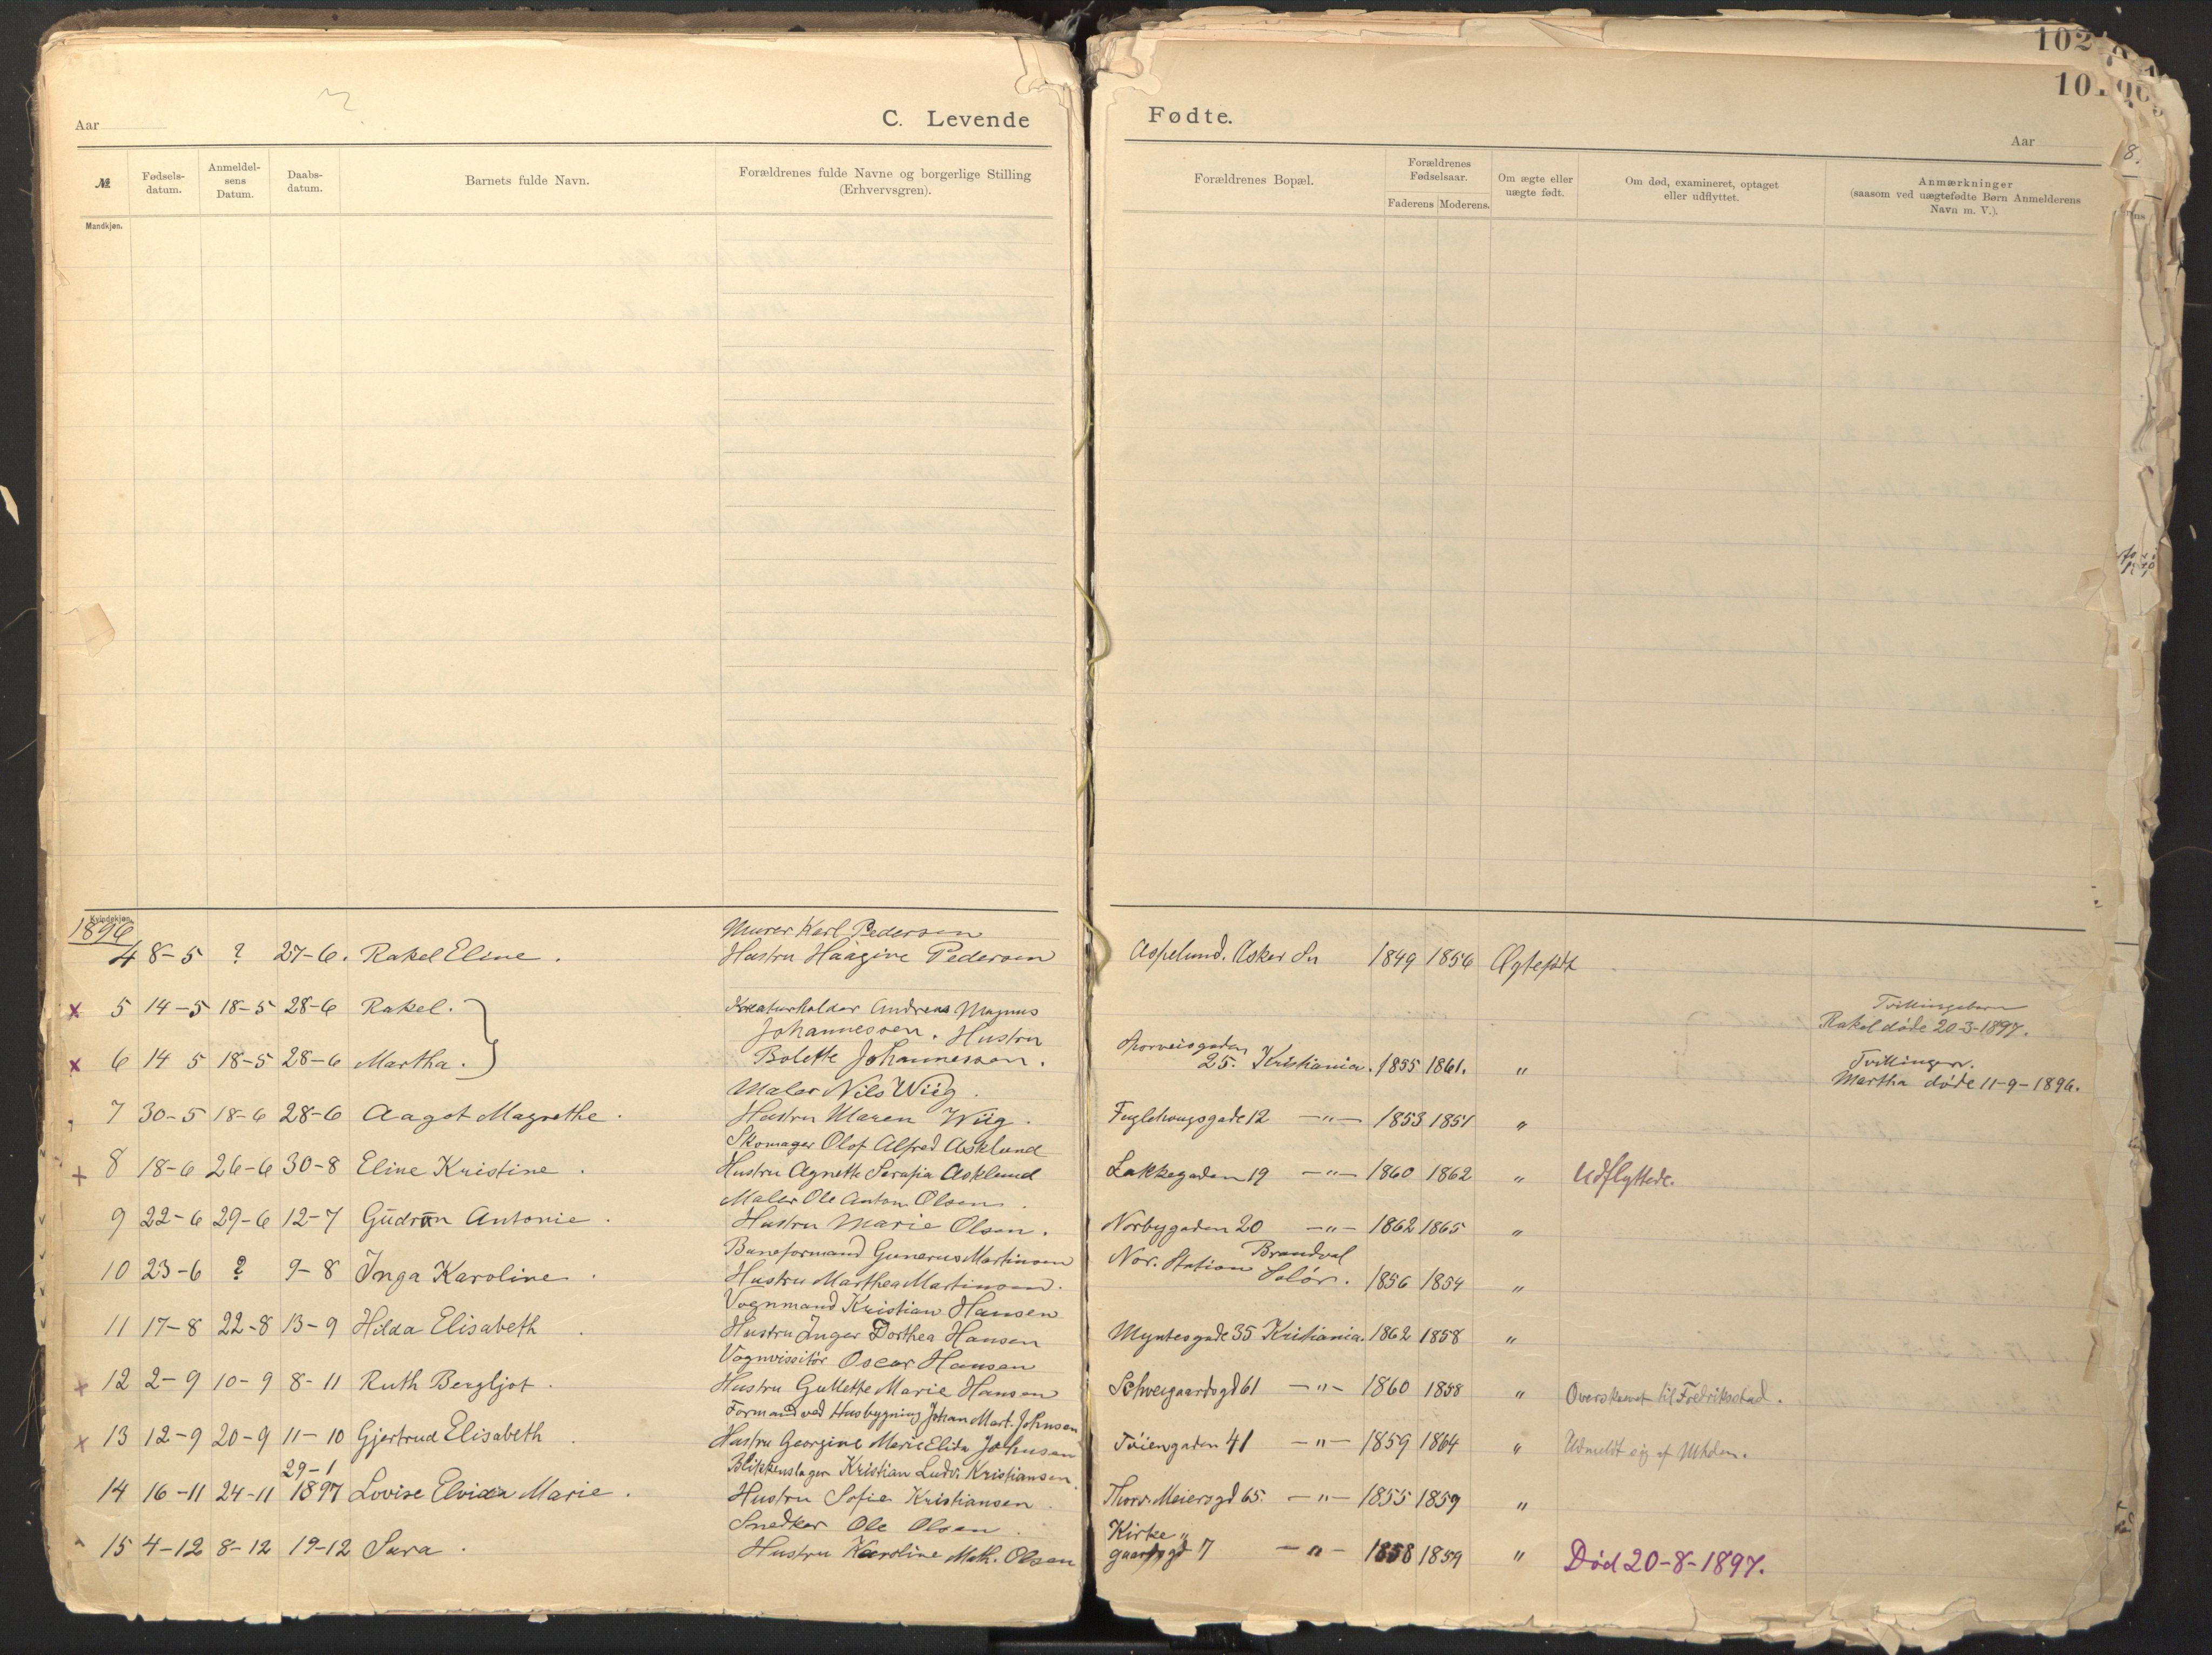 102
10
Aar
C. Levende
Fødte.
Aar
№
Fødsels-
datum.
Anmeldel-
sens
Datum.
Daabs-
datum.
Barnets fulde Navn.
Forældrenes fulde Navne og borgerlige Stilling
(Erhvervsgren).
Forældrenes Bopæl.
Forældrenes
Fødselsaar.
Faderens Moderens.
Om ægte eller
uægte født.
Om død, examineret, optaget
eller udflyttet.
Anmærkninger
(saasom ved uægtefødte Børn Anmelderens
Navn m. V.).
Mandkjøn.
Kvindekjøn.
1896
Murer Karl Pedersen
4 8-5 ? 27-6. Rakel Eline. Hustru Haagine Pedersen Aspelund. Asker Sn 1849 1856 Ægtefødt
x 5 14-5 18-5 28-6 Rakel. Kreaturholder Andreas Magnus
Johannessen. Hustru
Tvillingebarn
Rakel døde 20-3-1897.
x 6 14 5 18-5 28-6 Martha. Bolette Johannessen. Sporveisgaden
25. Kristiania. 1855 1861. "
Tvillinger.
Martha døde 11-9-1896.
Maler Nils Wiig.
7 30-5 18-6 28-6 Aagot Magrethe. Hustru Maren Wiig. Fuglehaugsgade 12 -"- 1853 1851 "
Skomager Olof Alfred Asklund
+ 8 18-6 26-6 30-8 Eline Kristine. Hustru Agnette Serafia Asklund Lakkegaden 19 -"- 1860 1862 " Udflyttede.
Maler Ole Anton Olsen.
9 22-6 29-6 12-7 Gudrun Antonie. Hustru Marie Olsen. Norbygaden 20 -"- 1862 1865 "
Baneformand Gunerus Martinsen
10 23-6 ? 9-8 Inga Karoline. Hustru Marthea Martinsen. Nor. Station Brandval
Solør. 1856 1854 "
Vognmand Kristian Hansen
11 17-8 22-8 13-9 Hilda Elisabeth. Hustru Inger Dorthea Hansen Myntesgade 35 Kristiania. 1862 1858 "
Vognvissitør Oscar Hansen
x 12 2-9 10-9 8-11 Ruth Bergljot. Hustru Gullette Marie Hansen Schweigaardsgd 61 -"- 1860 1858 " Overskrevet til Fredriksstad.
Formand ved Husbygning Johan Mart. Johnsen
x 13 12-9 20-9 11-10 Gjertrud Elisabeth. Hustru Georgine Marie Elida Johnsen Tøiengaden 41 -"- 1859 1864 " Udmeldt sig af
Blikkenslager Kristian Ludv. Kristiansen
29-1
14 16-11 24-11 1897 Lovise Elvida Marie. Hustru Sofie Kristiansen. Thorv. Meiersgd 65. -"- 1855 1859 "
Snedker Ole Olsen.
15 4-12 8-12 19-12 Sara. Hustru Karoline Math. Olsen Kirke "
gaardsgd 7 -"- 1858 1859 " Død 20-8-1897.